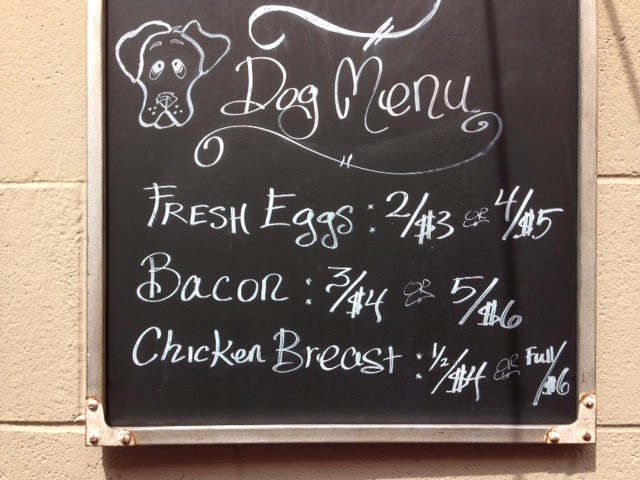 Dog Menu
FRESH Eggs : 2/$3 OR 4/$5
Bacon : 3/$4 OR 5/$6
Chicken Breast : 1/2/$4 OR Full/$6